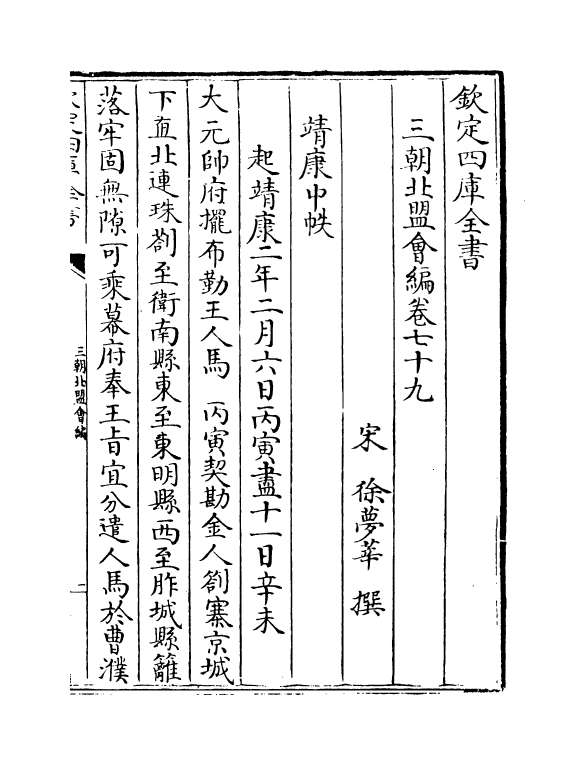 欽定四庫全書
三朝北盟會編卷七十九
宋 徐夢莘 撰
靖康中帙
起靖康二年二月六日丙寅盡十一日辛未
大元帥府擺布勤王人馬 丙寅契勘金人劄寨京城
下直北連珠劄至衛南縣東至東明縣西至胙城縣籬
落牢固無隙可乘幕府奉王旨宜分遣人馬於曹濮
欽定四庫全書
三朝北盟會編